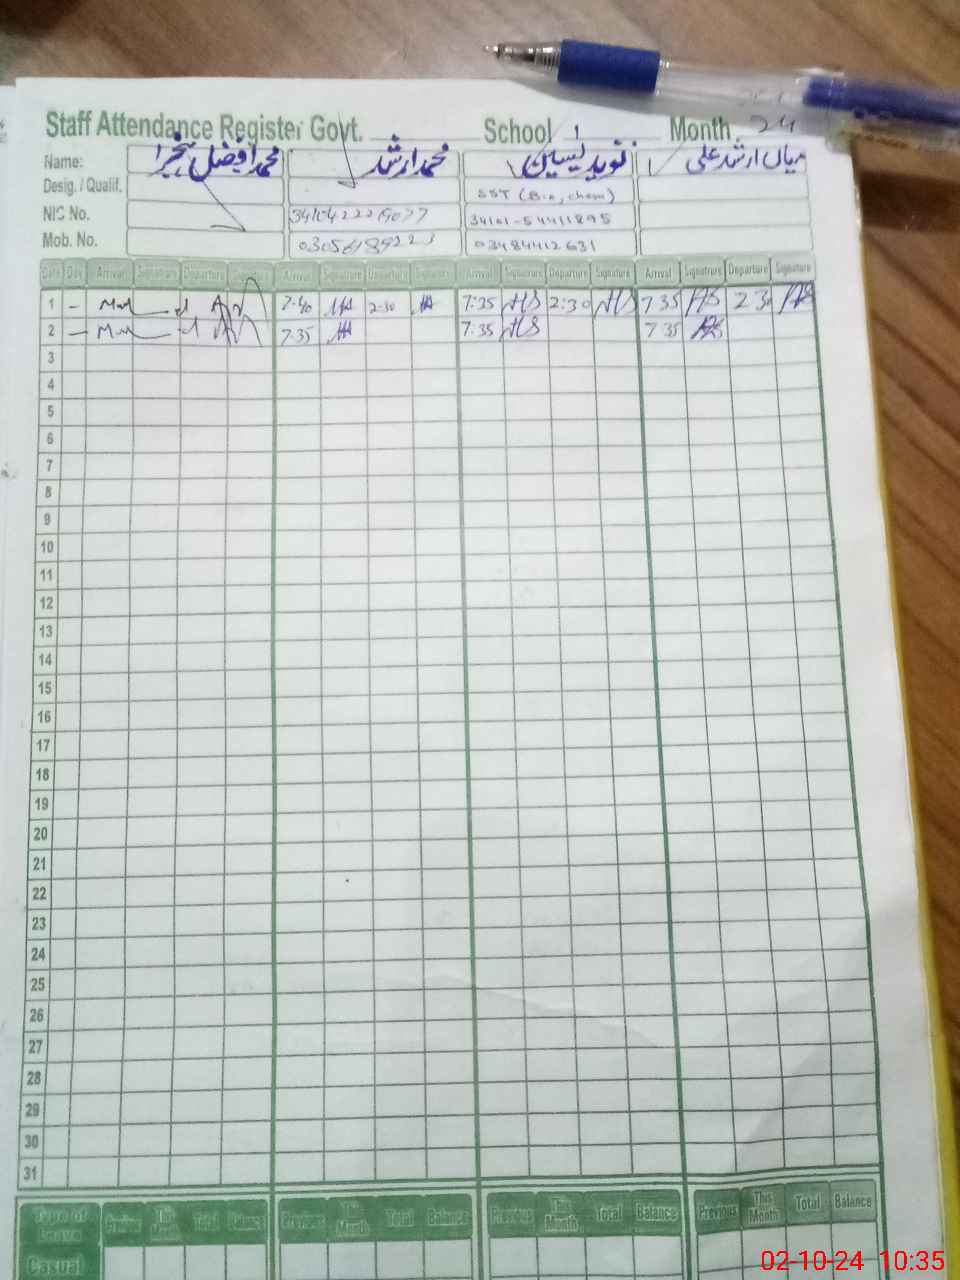 Staff Attendance Register Govt. School Month 24
Name: محمد افضل محمد ارشد نوید یسین میاں ارشد علی
Desig. / Qualif. SST (Bio, chem)
NIC No. 34101-54411895
Mob. No. 03484412631
Date Day Arrival Signature Departure Signature Arrival Signature Departure Signature Arrival Signature Departure Signature Arrival Signature Departure Signature
1 - 7:40 2:30 7:35 2:30 7 35 2 30
2 - 7:35 7:35 7 35
3
4
5
6
7
8
9
10
11
12
13
14
15
16
17
18
19
20
21
22
23
24
25
26
27
28
29
30
31
Type of Leave Previous This Month Total Balance Previous This Month Total Balance Previous This Month Total Balance Previous This Month Total Balance
Casual
02-10-24 10:35